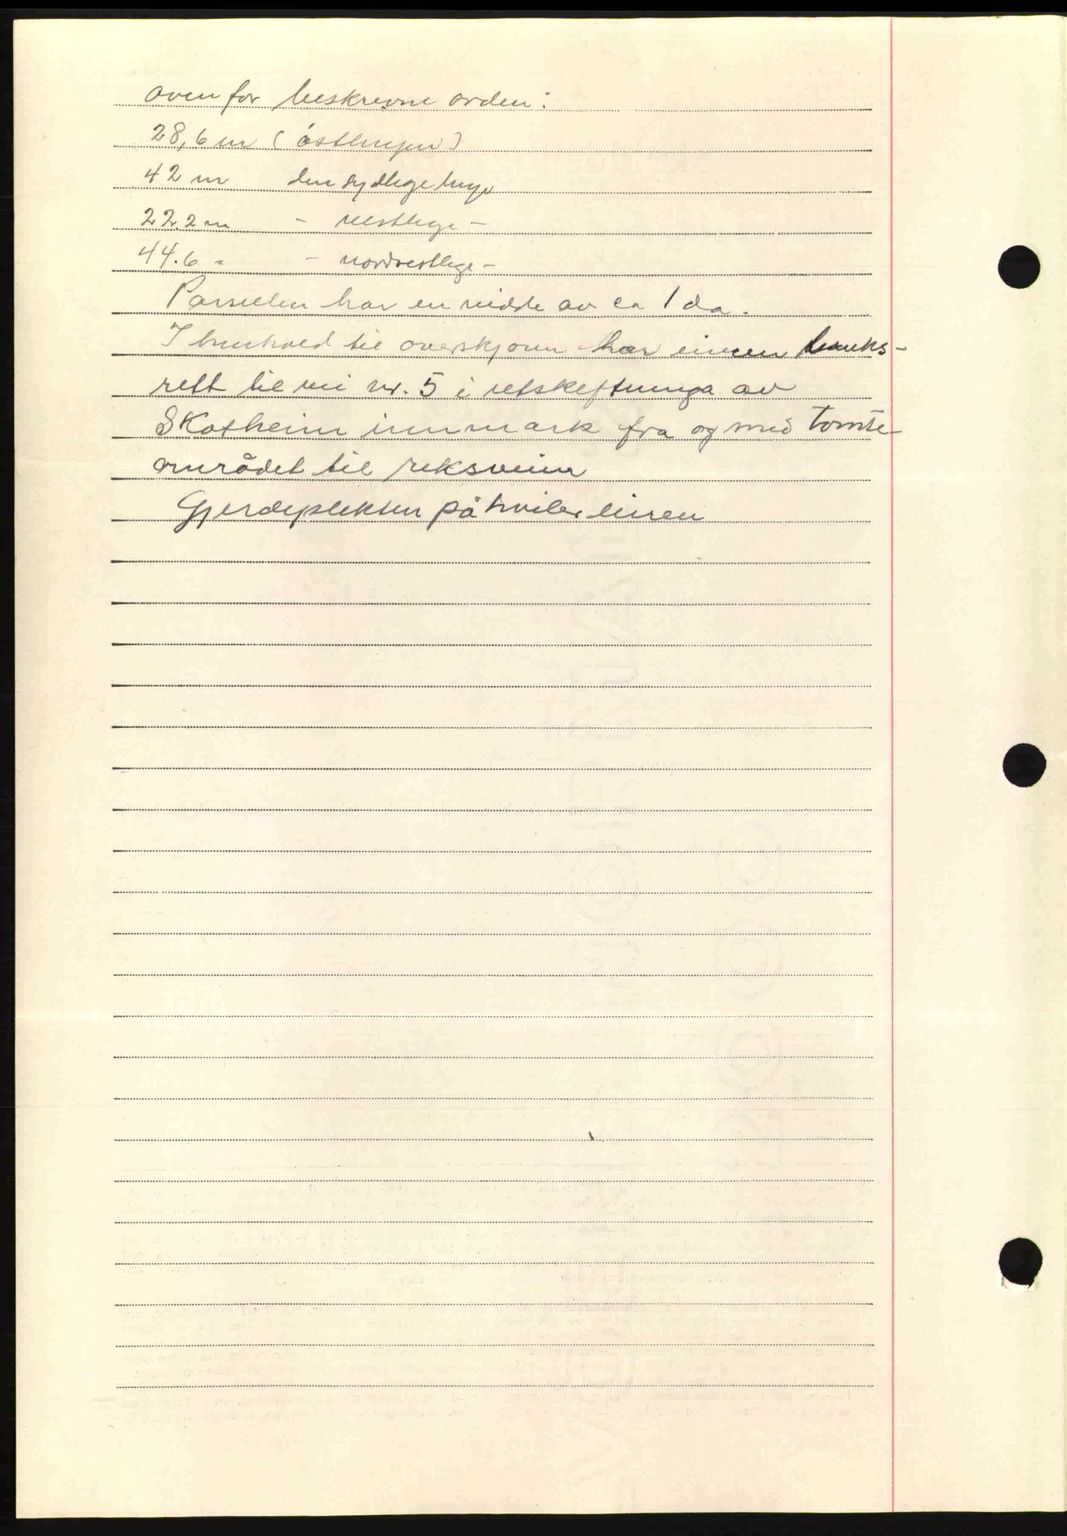 oven for beskrevne orden:
28,6 m (östlinjen)
42 m den sydlege linje
22.2 m - vestlege -
44.6 " - nordvestlege -
Parsellen har en vidde av ca 1 da.
I henhold til overskjønn har eieren bruks-
rett til vei nr. 5 i utskiftninga av
Skotheim innmark fra og med tomte-
området til riksveien
Gjerdeplikten påhviler eieren